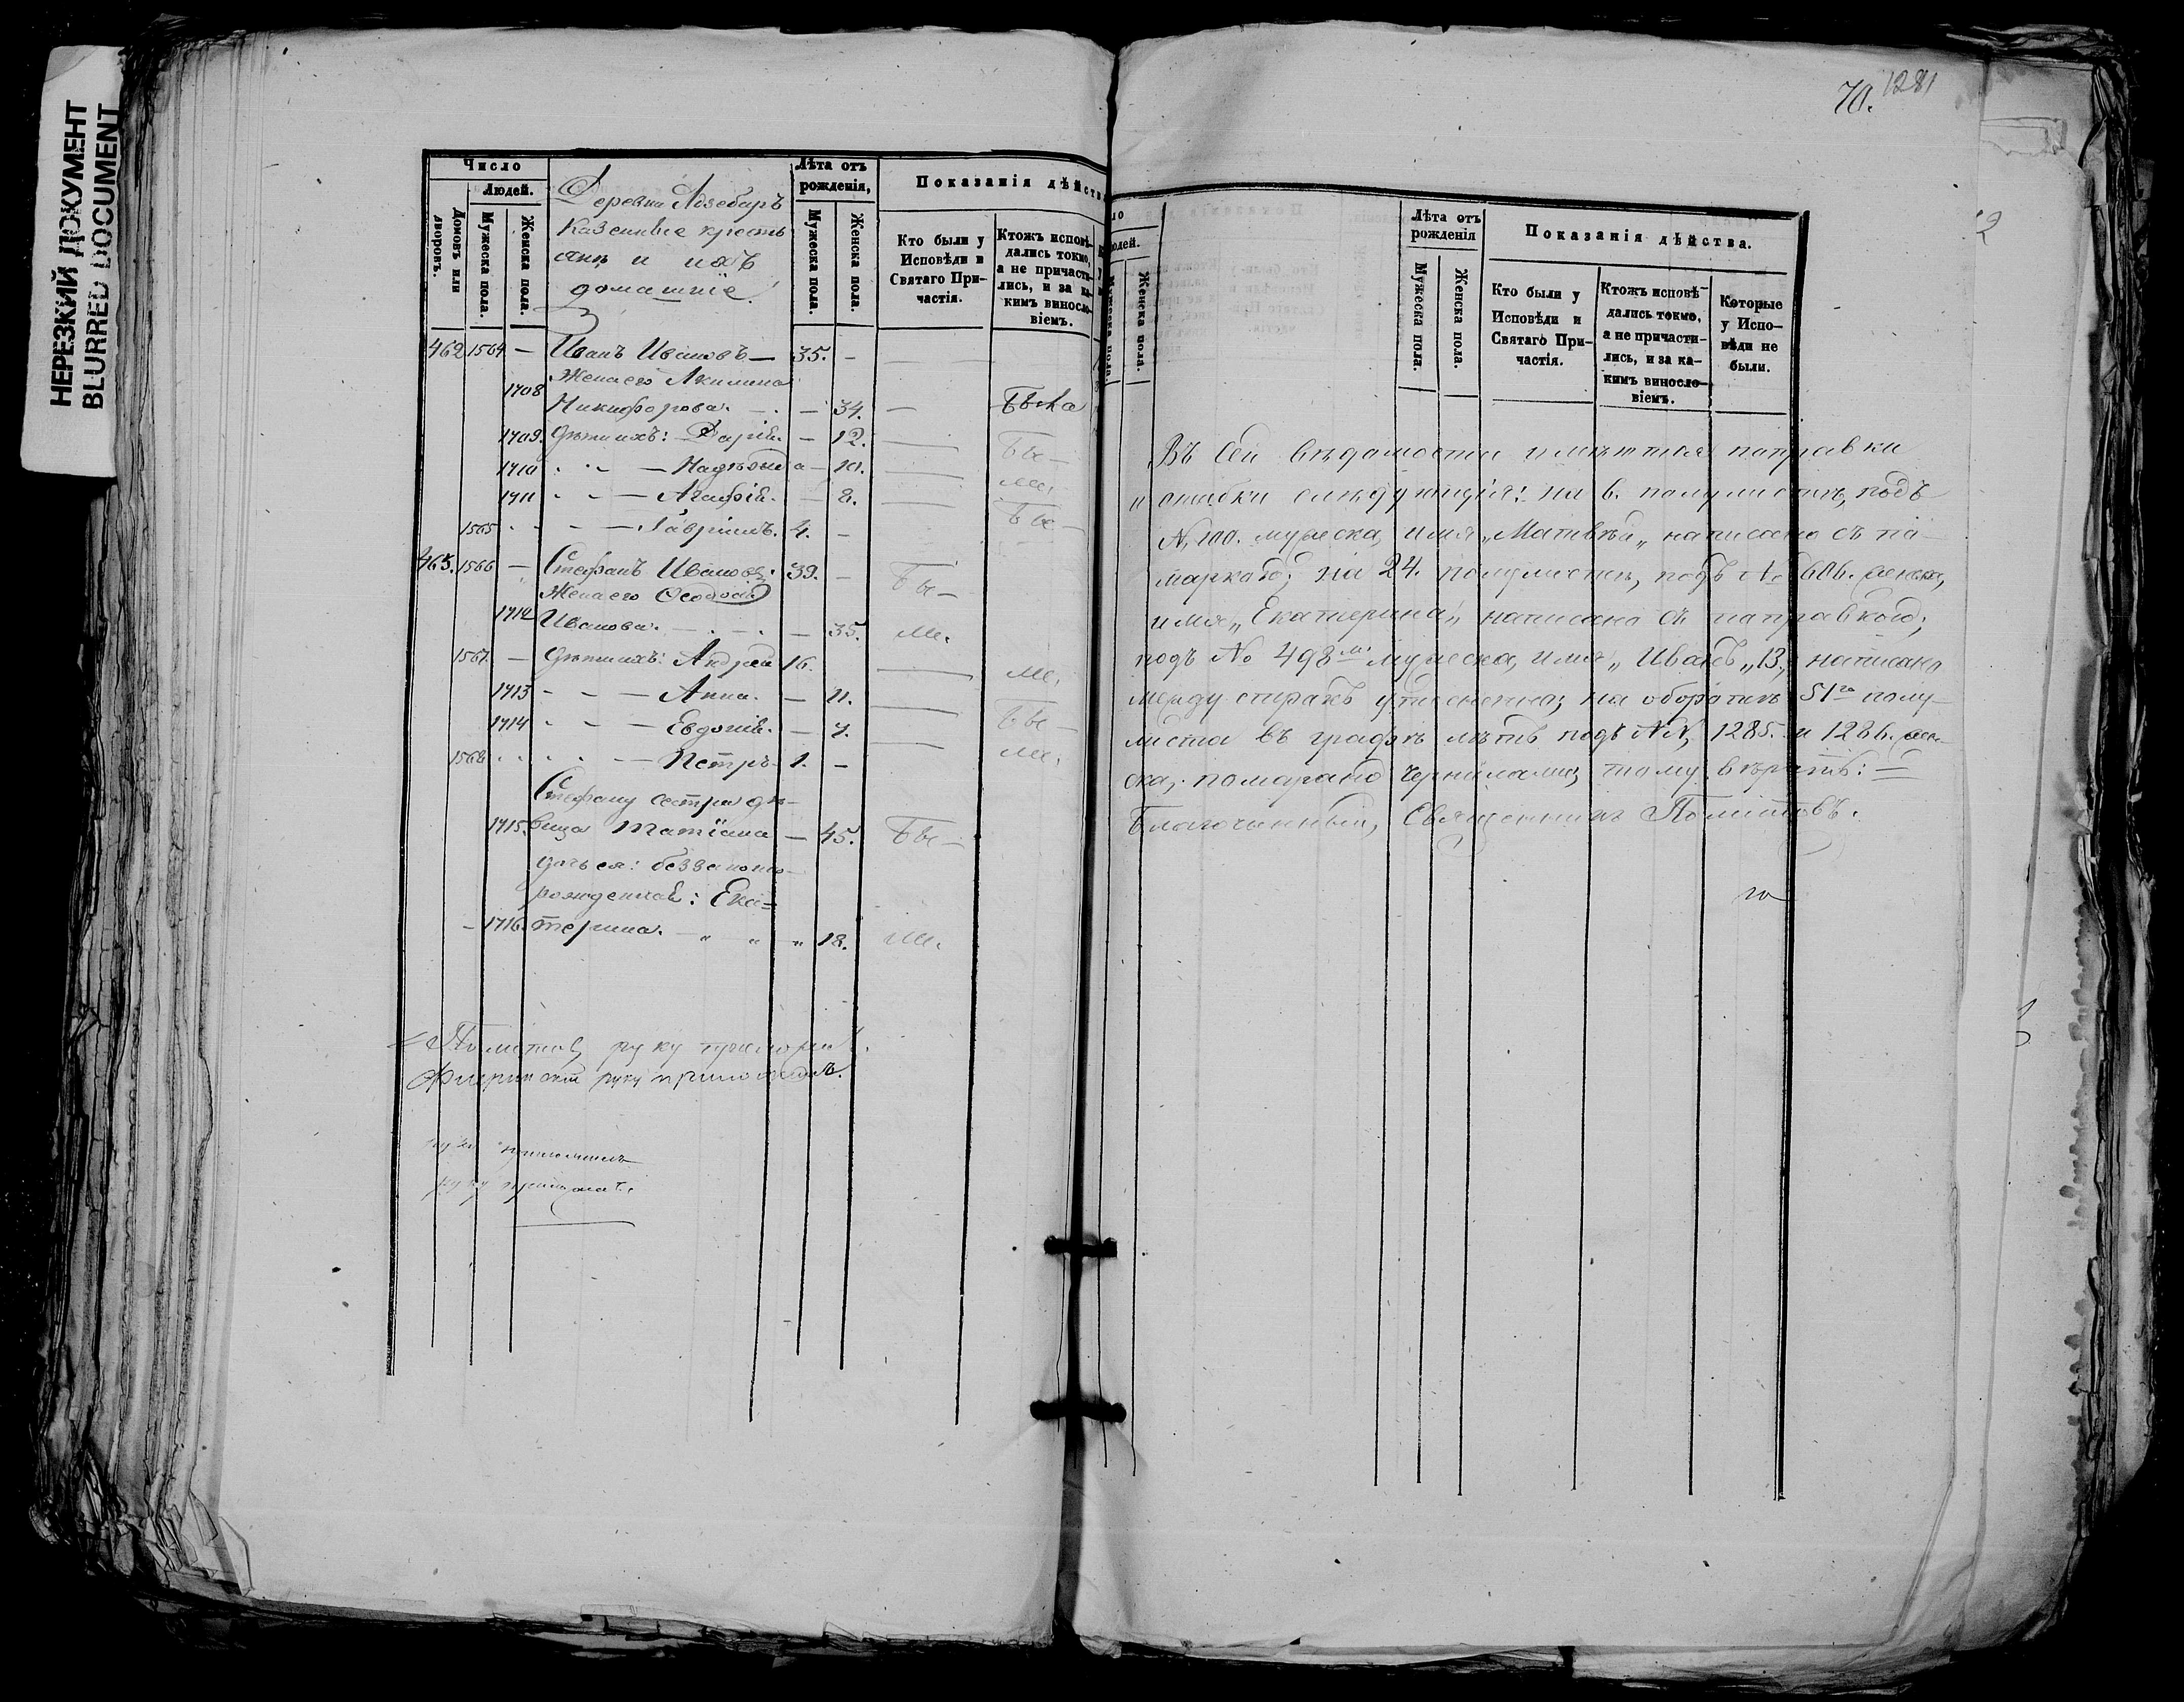 НЕРЕЗКИЙ ДОКУМЕНТ
BLURRED DOCUMENT
Число
Людей.
Домовъ или дворовъ.
Мужеска пола.
Женска пола.
Деревни Адзебаръ
Казенные кресть
яне и ихъ
домашніе:
Лѣта отъ
рожденія,
Мужеска пола.
Женска пола.
Показанія дѣйств
Кто были у
Исповѣди и
Святаго При-
частія.
Ктожъ исповѣ-
дались токмо,
а не причасти-
лись, и за ка-
кимъ виносло-
віемъ.
462 1564 — Иванъ Ивановъ — 35. —
Жена его Акилина
1708 Никифорова. — 34. — Бы-ла
1709. Дѣти ихъ: Дарія. — 12. — Бы-
1710 — Надежда — 10. — ли.
1711 — Агафія. — 8. — Бы-
1565 — Гавріилъ. 4. —
463. 1566 — Стефанъ Ивановъ 39. — Бы-
Жена его
1712 Иванова. — 35. ли.
1567. — Дѣти ихъ: Андрей 16. — ли.
1713 — Анна. — 11. — Бы-
1714 — Евдокія. — 7. — ли.
1568. — Петръ. 1. —
Стефану сестра дѣ-
1715. вица Татіана — 45. Бы-
дочь ея: беззаконно-
рожденная: Ека-
1716. терина. — „ „ „ 18. ли.
руку
руку приложилъ.
руку приложилъ
руку приложилъ.
70. 1281
Женска пола.
Лѣта отъ
рожденія
Мужеска пола.
Женска пола.
Показанія дѣйства.
Кто были у
Исповѣди и
Святаго При-
частія.
Ктожъ исповѣ-
дались токмо,
а не причасти-
лись, и за ка-
кимъ виносло-
віемъ.
Которые
у Испо-
вѣди не
были.
Въ сей вѣдомости имѣются поправки
и ошибки слѣдующія: на 6. полулистѣ, подъ
№ 100. мужеска, имя „Матвѣй„ написано съ по-
маркою; на 24. полулистѣ, подъ № 606. женска,
имя „Екатерина„ написано съ поправкою;
подъ № 498м. мужеска, имя „Иванъ„ 13„ написано
между строкъ утѣснено; на оборотѣ 51го полу-
листа въ графѣ лѣтъ подъ №№, 1285. и 1286. жен-
ска, помарано чернилами, тому вѣрить: =
Благочинный, Священникъ